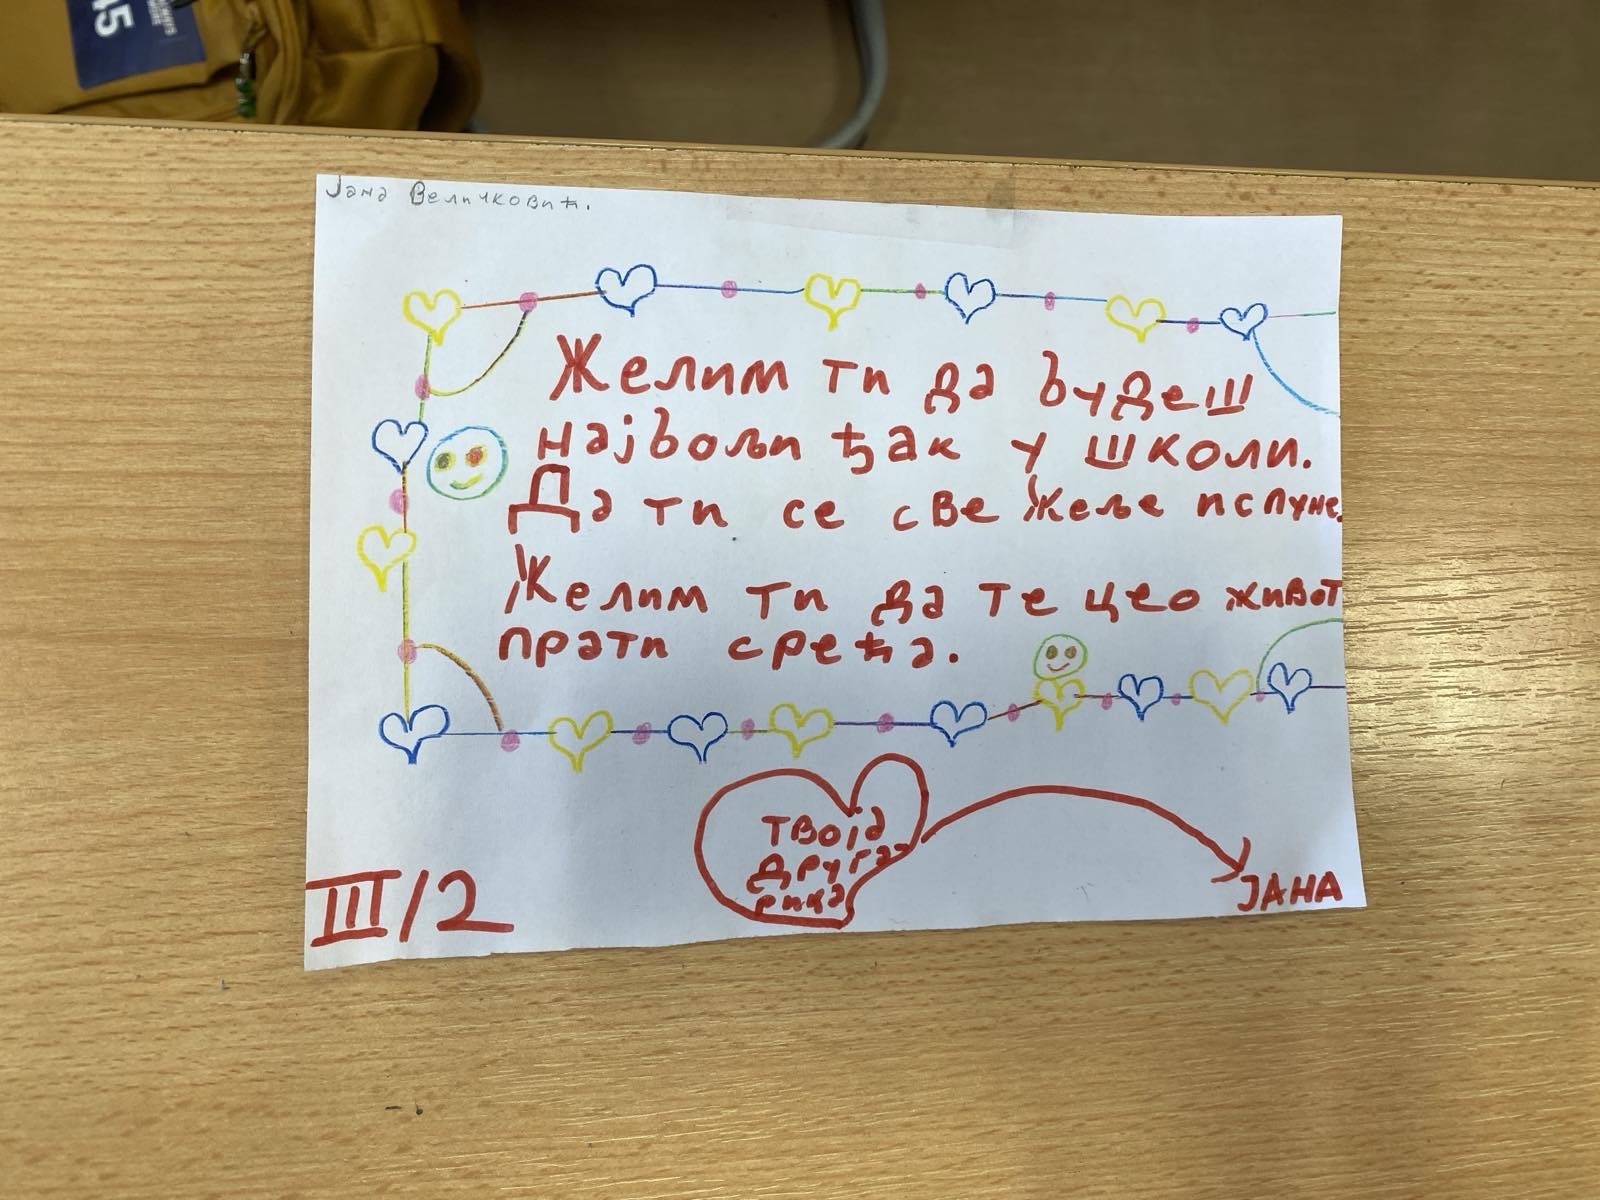 45
Јана Величковић.
Желим ти да будеш
најбољи ђак у школи.
Да ти се све жеље испуне.
Желим ти да те цео живот
прати срећа.
Твоја
друга-
рица
ЈАНА
III/2